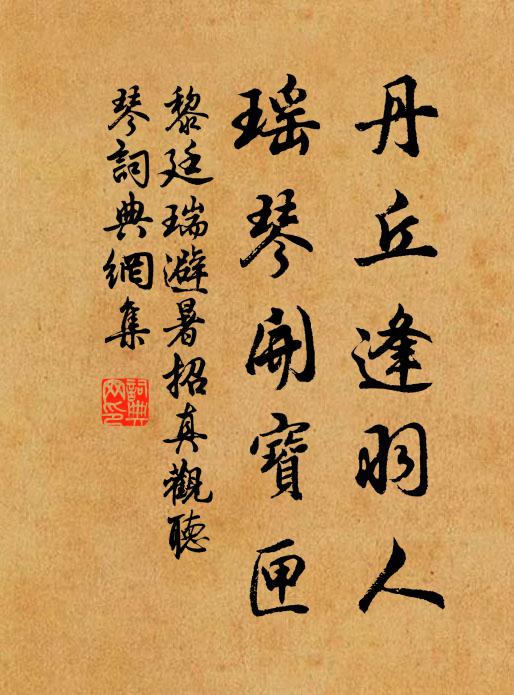 丹丘逢羽人
瑶琴開寶匣
黎廷瑞避暑招真觀聽
琴詞典網集
詞典
网印